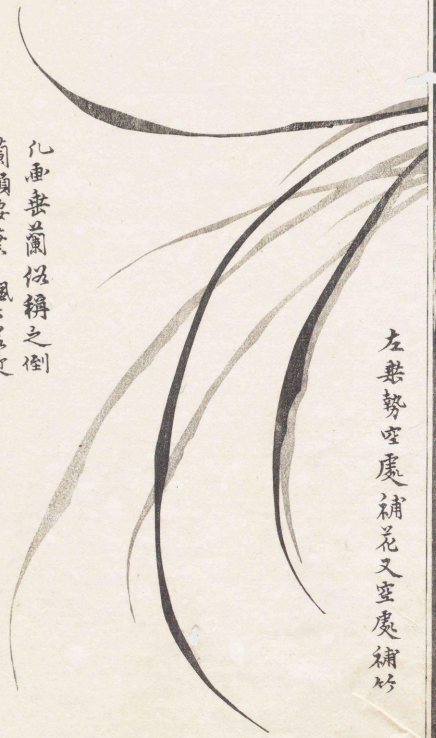 左垂勢空處補花又空處補竹
凡画垂蘭俗稱之倒